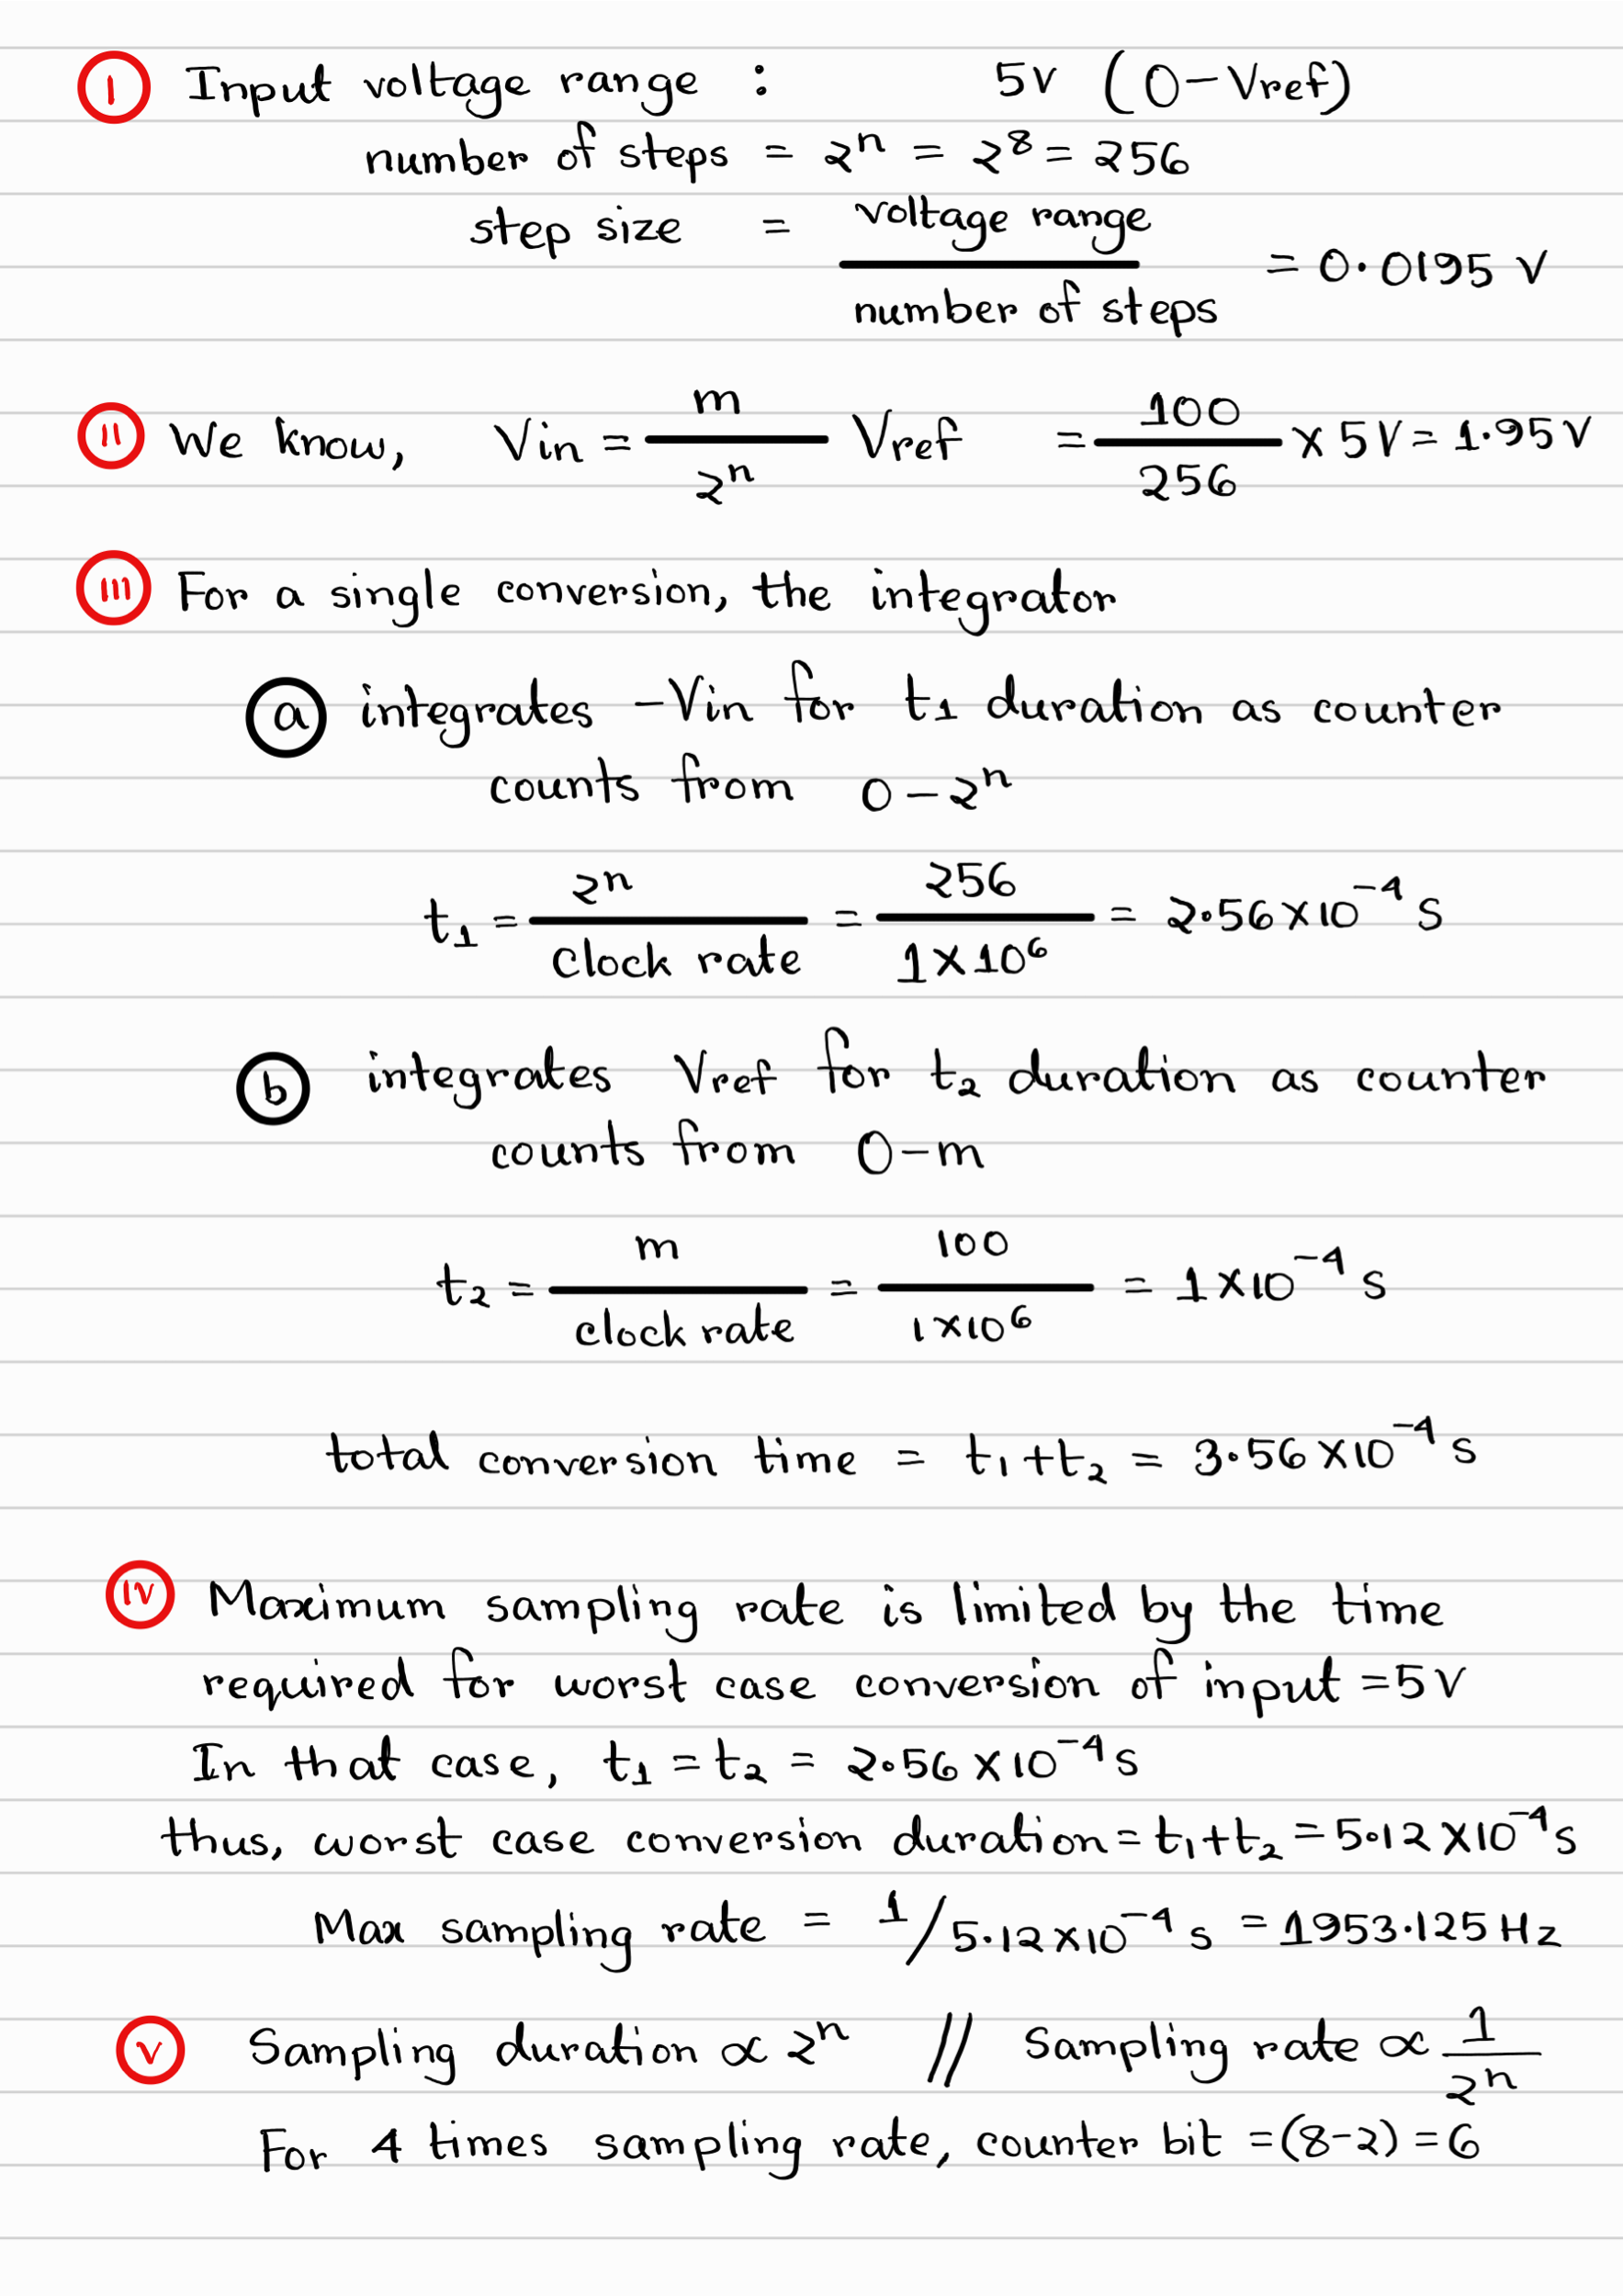 I Input voltage range : 5V (0-Vref)
number of steps = 2^n = 2^8 = 256
step size = voltage range / number of steps = 0.0195 V
II We know, Vin = m / 2^n Vref = 100 / 256 × 5V = 1.95V
III For a single conversion, the integrator
a integrates -Vin for t1 duration as counter
counts from 0-2^n
t1 = 2^n / Clock rate = 256 / 1×10^6 = 2.56×10^-4 S
b integrates Vref for t2 duration as counter
counts from 0-m
t2 = m / clock rate = 100 / 1×10^6 = 1×10^-4 s
total conversion time = t1+t2 = 3.56×10^-4 s
IV Maximum sampling rate is limited by the time
required for worst case conversion of input =5V
In that case, t1 = t2 = 2.56×10^-4 s
thus, worst case conversion duration = t1+t2 = 5.12×10^-4 s
Max sampling rate = 1/5.12×10^-4 s = 1953.125 Hz
V Sampling duration ∝ 2^n // Sampling rate ∝ 1 / 2^n
For 4 times sampling rate, counter bit =(8-2) =6